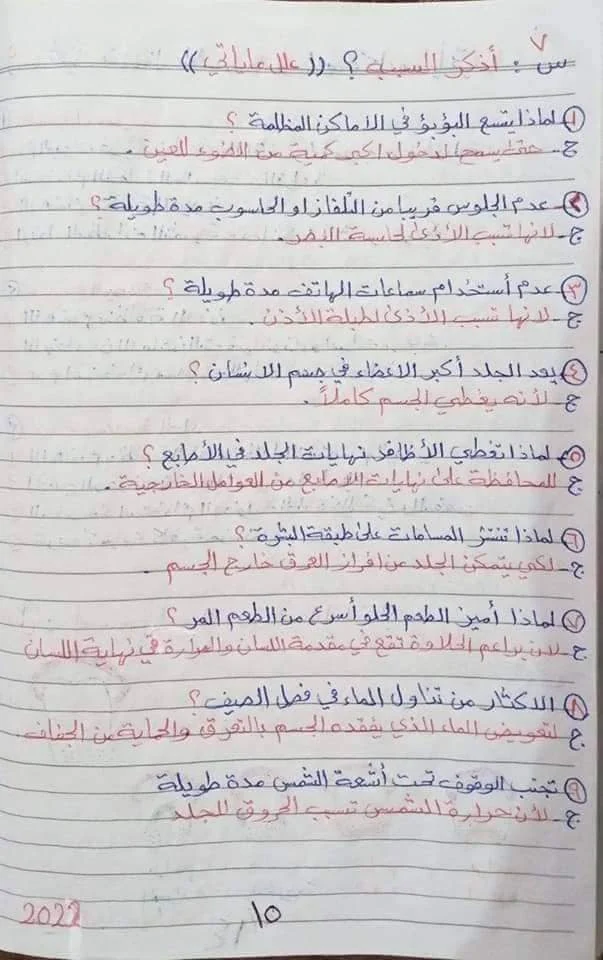 ٧
س : أذكر السبب ؟ (( علل مايأتي ))
١ لماذا يتسع البؤبؤ في الأماكن المظلمة ؟
ج - حتى يسمح لدخول اكبر كمية من الضوء للعين .
٢ - عدم الجلوس قريبا من التلفاز او الحاسوب مدة طويلة ؟
ج - لانها تسبب الأذى لحاسة البصر .
٣ - عدم أستخدام سماعات الهاتف مدة طويلة ؟
ج - لانها تسبب الأذى لطبلة الأذن .
٤ يعد الجلد أكبر الاعضاء في جسم الانسان ؟
ج - لأنه يغطي الجسم كاملاً .
٥ لماذا تغطي الأظافر نهايات الجلد في الأصابع ؟
ج للمحافظة على نهايات الاصابع من العوامل الخارجية .
٦ لماذا تنتشر المسامات على طبقة البشرة ؟
ج - لكي يتمكن الجلد من افراز العرق خارج الجسم .
٧ لماذا أميز الطعم الحلو أسرع من الطعم المر ؟
ج - لان براعم الحلاوة تقع في مقدمة اللسان والمرارة في نهاية اللسان
٨ الاكثار من تناول الماء في فصل الصيف ؟
ج لتعويض الماء الذي يفقده الجسم بالتعرق والحماية من الجفاف
٩ تجنب الوقوف تحت أشعة الشمس مدة طويلة
ج - لأن حرارة الشمس تسبب الحروق للجلد
١٥
2022